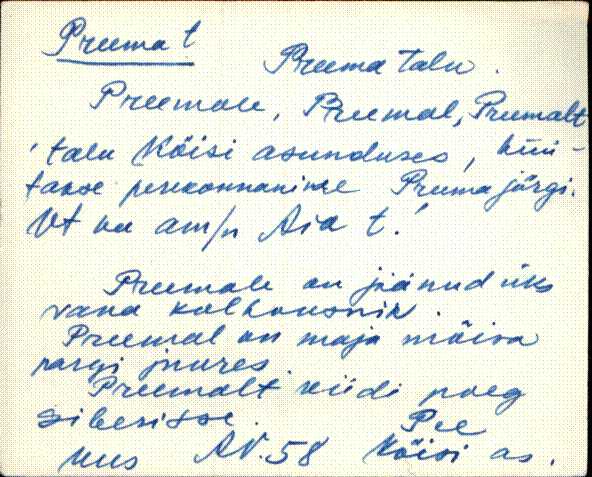 Preema t
Preema talu.
Preemale, Preemal, Preemalt
'talu Kõisi asunduses, hüü-
takse perekonnanime Preema järgi.
Vt ka am/n Aia t.!
Preemale on jäänud üks
vana kolhoosnik.
Preemal on maja mõisa
pargi juures
Preemalt viidi poeg
siberisse.
Pee
AV. 58 Kõisi as.